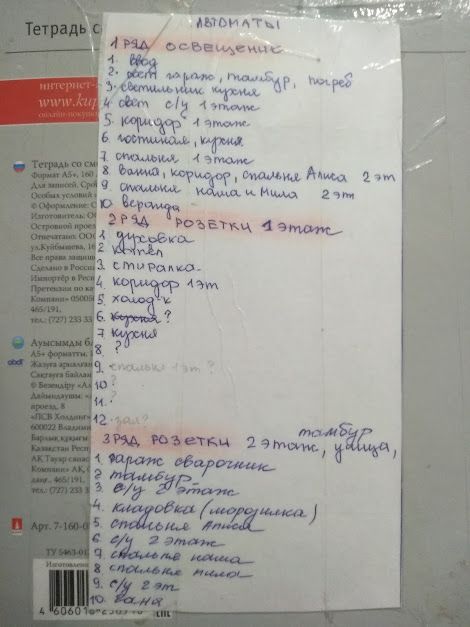 Тетрадь с
АВТОМАТЫ
1 РЯД ОСВЕЩЕНИЕ
1. ввод
2. свет гараж, тамбур, погреб
3. светильник кухня
4. свет с/у 1 этаж
5. коридор 1 этаж
6. гостиная, кухня
7. спальня 1 этаж
8. ванна, коридор, спальня Алиса 2 эт
9. спальня наша и Мила 2 эт
10. веранда
2 РЯД РОЗЕТКИ 1 этаж
1. духовка
2. котел
3. стиралка
4. коридор 1 эт
5. холод-к
6. кухня ?
7. кухня
8. ?
9. спальня 1 эт ?
10. ?
11. ?
12. зал?
3 РЯД РОЗЕТКИ 2 этаж, улица, тамбур
1. гараж сварочник
2. тамбур
3. с/у 2 этаж
4. кладовка (морозилка)
5. спальня Алиса
6. с/у 2 этаж
7. спальня наша
8. спальня мила
9. с/у 2 эт
10. вана
интернет-
www.kup
онлайн-покупо
Тетрадь со см
Формат А5+, 160
Для записей. Срок
Особых условий
© Оформление:
Изготовитель: ОО
Островной проез
Отпечатано: ОО
ул.Куйбышева, 16
Все права защищ
Сделано в Росси
Импортёр в Респ
Претензии по ка
Компани» 05005
465/191,
тел.: (727) 233 33
Ауысымды бл
А5+ форматты,
Жазуға арналған
Сақтауға байлан
© Безендіру «Ал
Дайындаушы:
проезд, 8
«ПСВ Холдинг»
600022 Владими
Барлық құқығы
Қазақстан Респу
АҚ, Тауар сапас
Компани» АҚ
465/191,
тел.: (727) 233 3
Арт. 7-160-0
ТУ 5463-01
Изготовлено